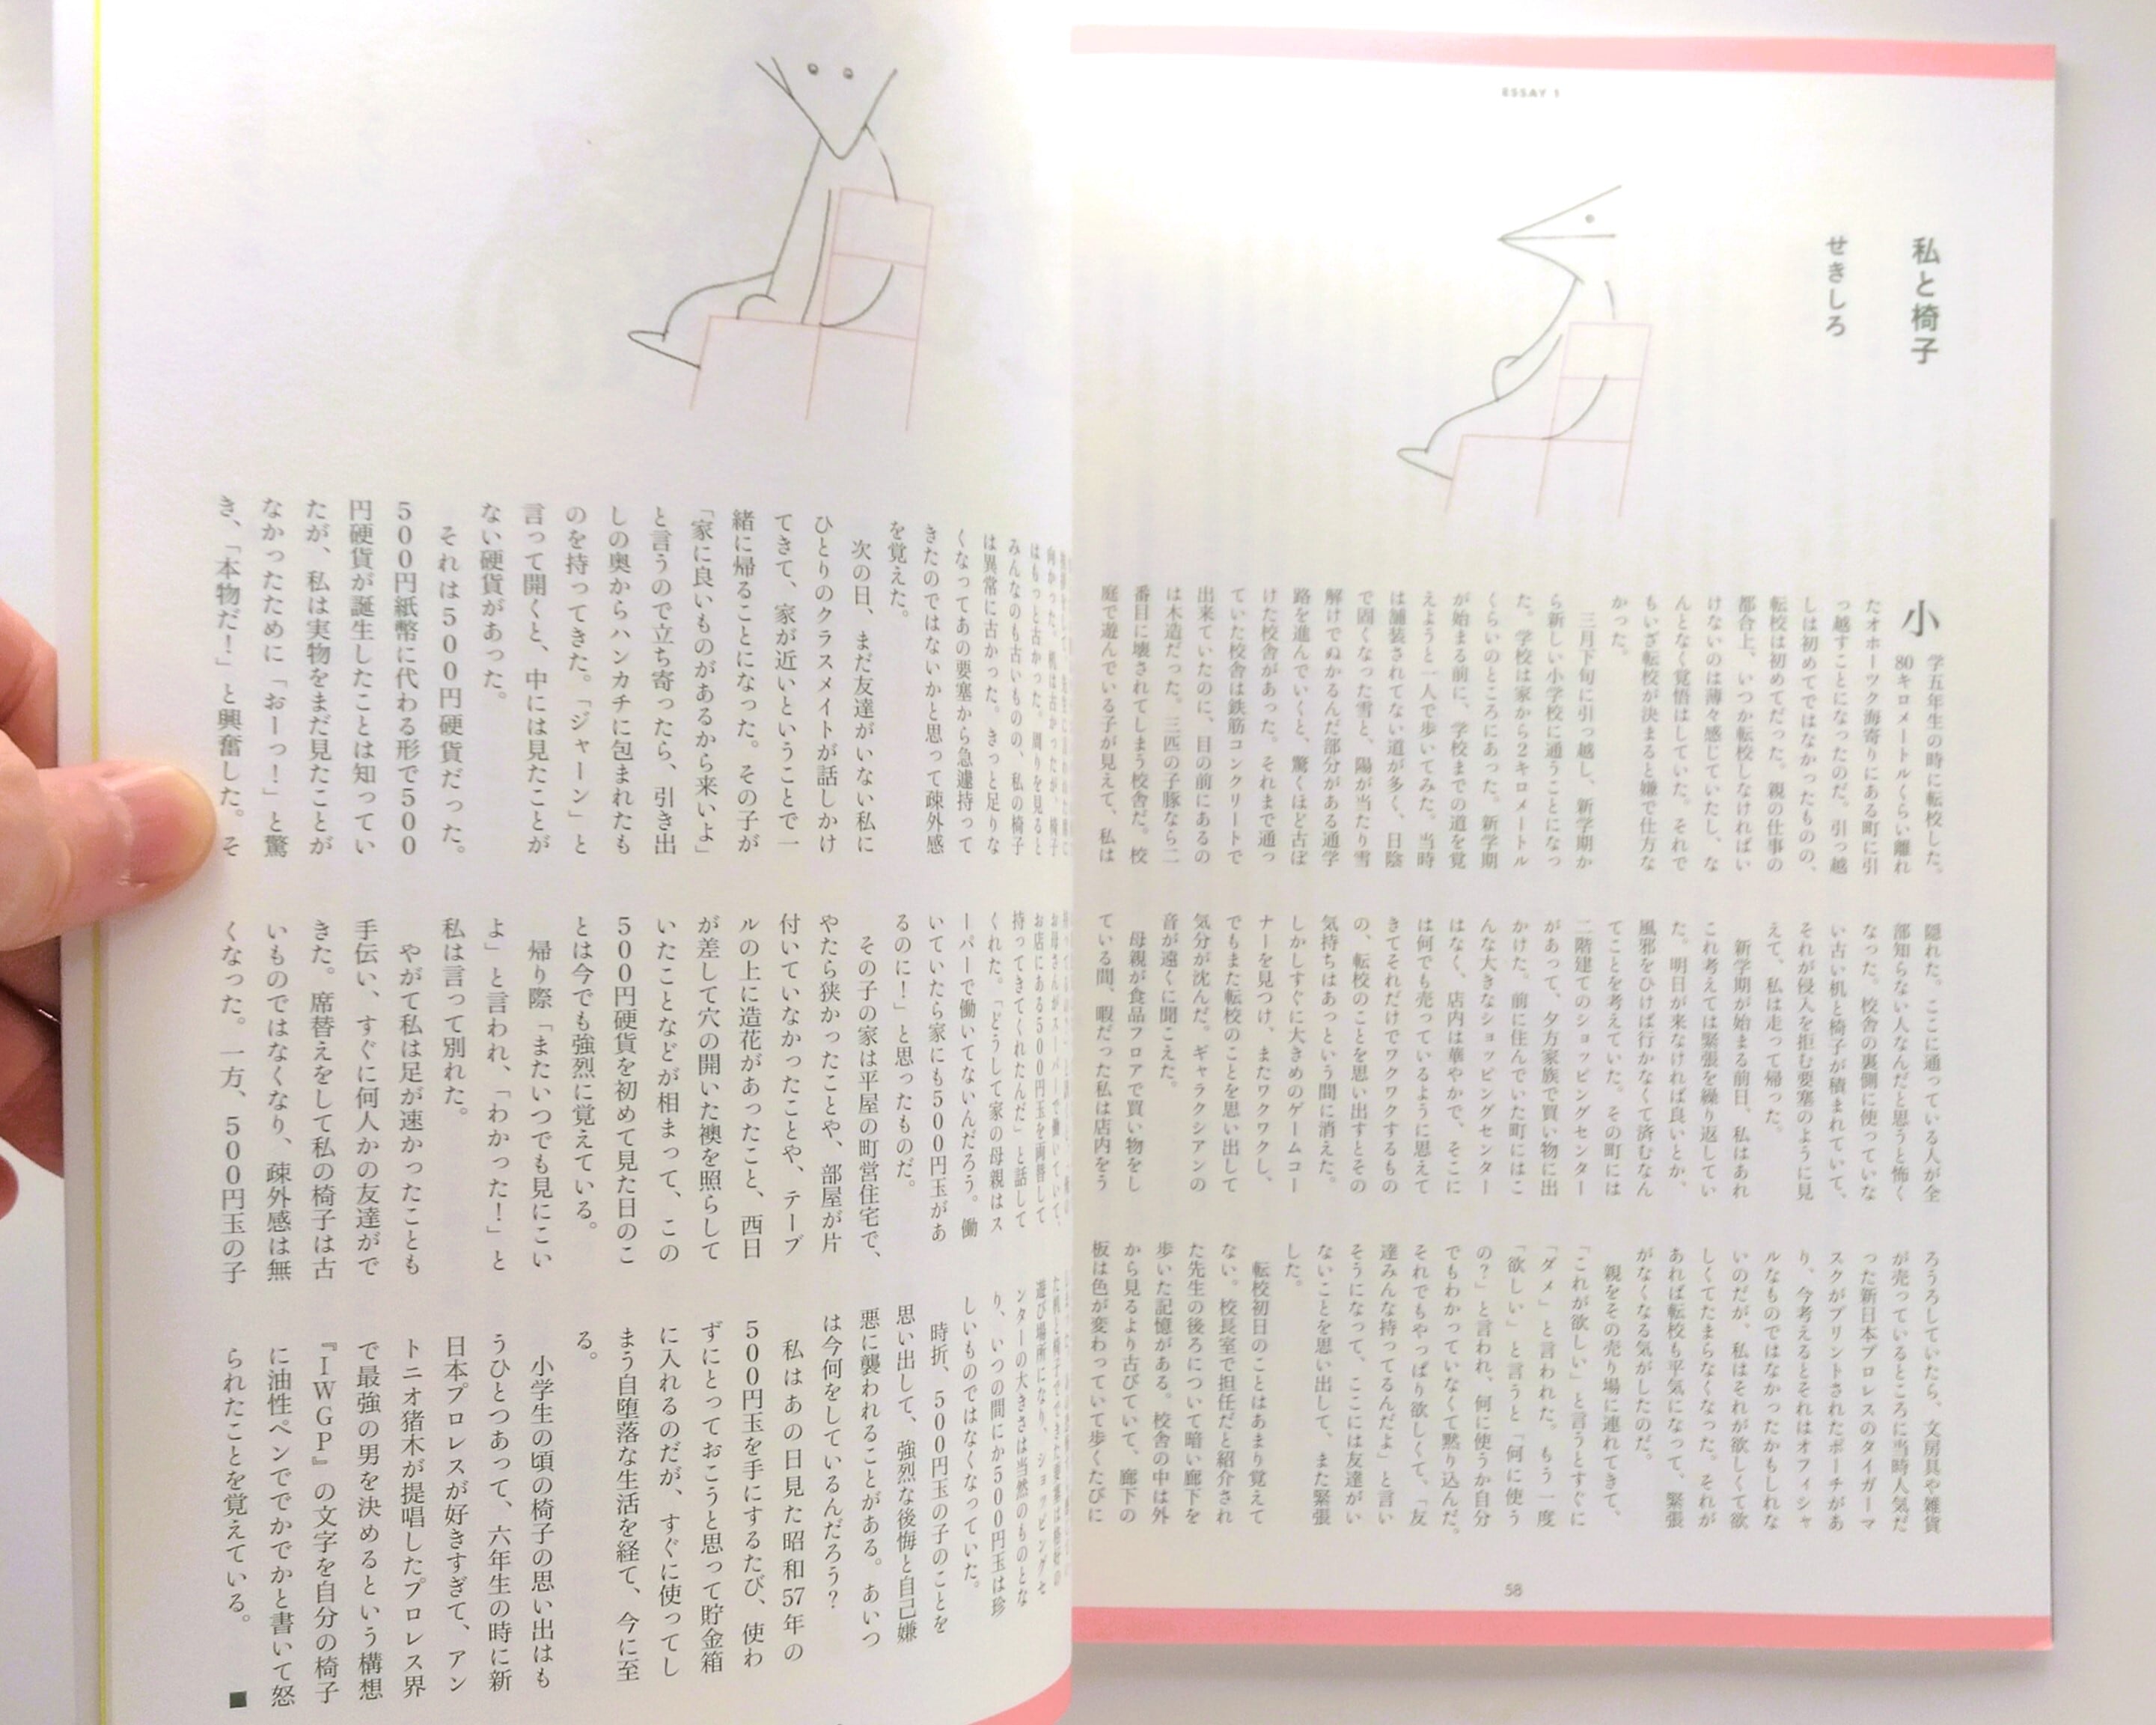 ESSAY 1
私と椅子
せきしろ
小学五年生の時に転校した。
80キロメートルくらい離れ
たオホーツク海寄りにある町に引
っ越すことになったのだ。引っ越
しは初めてではなかったものの、
転校は初めてだった。親の仕事の
都合上、いつか転校しなければい
けないのは薄々感じていたし、な
んとなく覚悟はしていた。それで
もいざ転校が決まると嫌で仕方な
かった。
三月下旬に引っ越し、新学期か
ら新しい小学校に通うことになっ
た。学校は家から2キロメートル
くらいのところにあった。新学期
が始まる前に、学校までの道を覚
えようと一人で歩いてみた。当時
は舗装されてない道が多く、日陰
で固くなった雪と、陽が当たり雪
解けでぬかるんだ部分がある通学
路を進んでいくと、驚くほど古ぼ
けた校舎があった。それまで通っ
ていた校舎は鉄筋コンクリートで
出来ていたのに、目の前にあるの
は木造だった。三匹の子豚なら二
番目に壊されてしまう校舎だ。校
庭で遊んでいる子が見えて、私は
隠れた。ここに通っている人が全
部知らない人なんだと思うと怖く
なった。校舎の裏側に使っていな
い古い机と椅子が積まれていて、
それが侵入を拒む要塞のように見
えて、私は走って帰った。
新学期が始まる前日、私はあれ
これ考えては緊張を繰り返してい
た。明日が来なければ良いとか、
風邪をひけば行かなくて済むなん
てことを考えていた。その町には
二階建てのショッピングセンター
があって、夕方家族で買い物に出
かけた。前に住んでいた町にはこ
んな大きなショッピングセンター
はなく、店内は華やかで、そこに
は何でも売っているように思えて
きてそれだけでワクワクするもの
の、転校のことを思い出すとその
気持ちはあっという間に消えた。
しかしすぐに大きめのゲームコー
ナーを見つけ、またワクワクし、
でもまた転校のことを思い出して
気分が沈んだ。ギャラクシアンの
音が遠くに聞こえた。
母親が食品フロアで買い物をし
ている間、暇だった私は店内をう
ろうろしていたら、文房具や雑貨
が売っているところに当時人気だ
った新日本プロレスのタイガーマ
スクがプリントされたポーチがあ
り、今考えるとそれはオフィシャ
ルなものではなかったかもしれな
いのだが、私はそれが欲しくて欲
しくてたまらなくなった。それが
あれば転校も平気になって、緊張
がなくなる気がしたのだ。
親をその売り場に連れてきて、
「これが欲しい」と言うとすぐに
「ダメ」と言われた。もう一度
「欲しい」と言うと「何に使う
の？」と言われ、何に使うか自分
でもわかっていなくて黙り込んだ。
それでもやっぱり欲しくて、「友
達みんな持ってるんだよ」と言い
そうになって、ここには友達がい
ないことを思い出して、また緊張
した。
転校初日のことはあまり覚えて
ない。校長室で担任だと紹介され
た先生の後ろについて暗い廊下を
歩いた記憶がある。校舎の中は外
から見るより古びていて、廊下の
板は色が変わっていて歩くたびに
58
向かった。机は古かったが、椅子
はもっと古かった。周りを見ると
みんなのも古いものの、私の椅子
は異常に古かった。きっと足りな
くなってあの要塞から急遽持って
きたのではないかと思って疎外感
を覚えた。
次の日、まだ友達がいない私に
ひとりのクラスメイトが話しかけ
てきて、家が近いということで一
緒に帰ることになった。その子が
「家に良いものがあるから来いよ」
と言うので立ち寄ったら、引き出
しの奥からハンカチに包まれたも
のを持ってきた。「ジャーン」と
言って開くと、中には見たことが
ない硬貨があった。
それは500円硬貨だった。
500円紙幣に代わる形で500
円硬貨が誕生したことは知ってい
たが、私は実物をまだ見たことが
なかったために「おーっ！」と驚
き、「本物だ！」と興奮した。そ
お母さんがスーパーで働いていて、
お店にある500円玉を両替して
持ってきてくれたんだ」と話して
くれた。「どうして家の母親はス
ーパーで働いてないんだろう。働
いていたら家にも500円玉があ
るのに！」と思ったものだ。
その子の家は平屋の町営住宅で、
やたら狭かったことや、部屋が片
付いていなかったことや、テーブ
ルの上に造花があったこと、西日
が差して穴の開いた襖を照らして
いたことなどが相まって、この
500円硬貨を初めて見た日のこ
とは今でも強烈に覚えている。
帰り際「またいつでも見にこい
よ」と言われ、「わかった！」と
私は言って別れた。
やがて私は足が速かったことも
手伝い、すぐに何人かの友達がで
きた。席替えをして私の椅子は古
いものではなくなり、疎外感は無
くなった。一方、500円玉の子
遊び場所になり、ショッピングセ
ンターの大きさは当然のものとな
り、いつの間にか500円玉は珍
しいものではなくなっていた。
時折、500円玉の子のことを
思い出して、強烈な後悔と自己嫌
悪に襲われることがある。あいつ
は今何をしているんだろう？
私はあの日見た昭和57年の
500円玉を手にするたび、使わ
ずにとっておこうと思って貯金箱
に入れるのだが、すぐに使ってし
まう自堕落な生活を経て、今に至
る。
小学生の頃の椅子の思い出はも
うひとつあって、六年生の時に新
日本プロレスが好きすぎて、アン
トニオ猪木が提唱したプロレス界
で最強の男を決めるという構想
『IWGP』の文字を自分の椅子
に油性ペンででかでかと書いて怒
られたことを覚えている。 ■